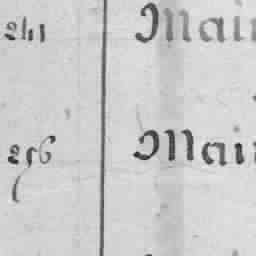 241 Mai
256 Mai